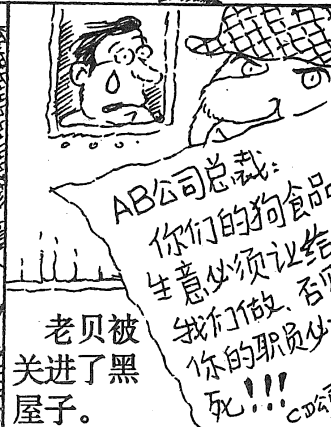 AB公司总裁：
你们的狗食品
生意必须让给
我们做、否则
你的职员必
死!!!
CD公司
老贝被
关进了黑
屋子。